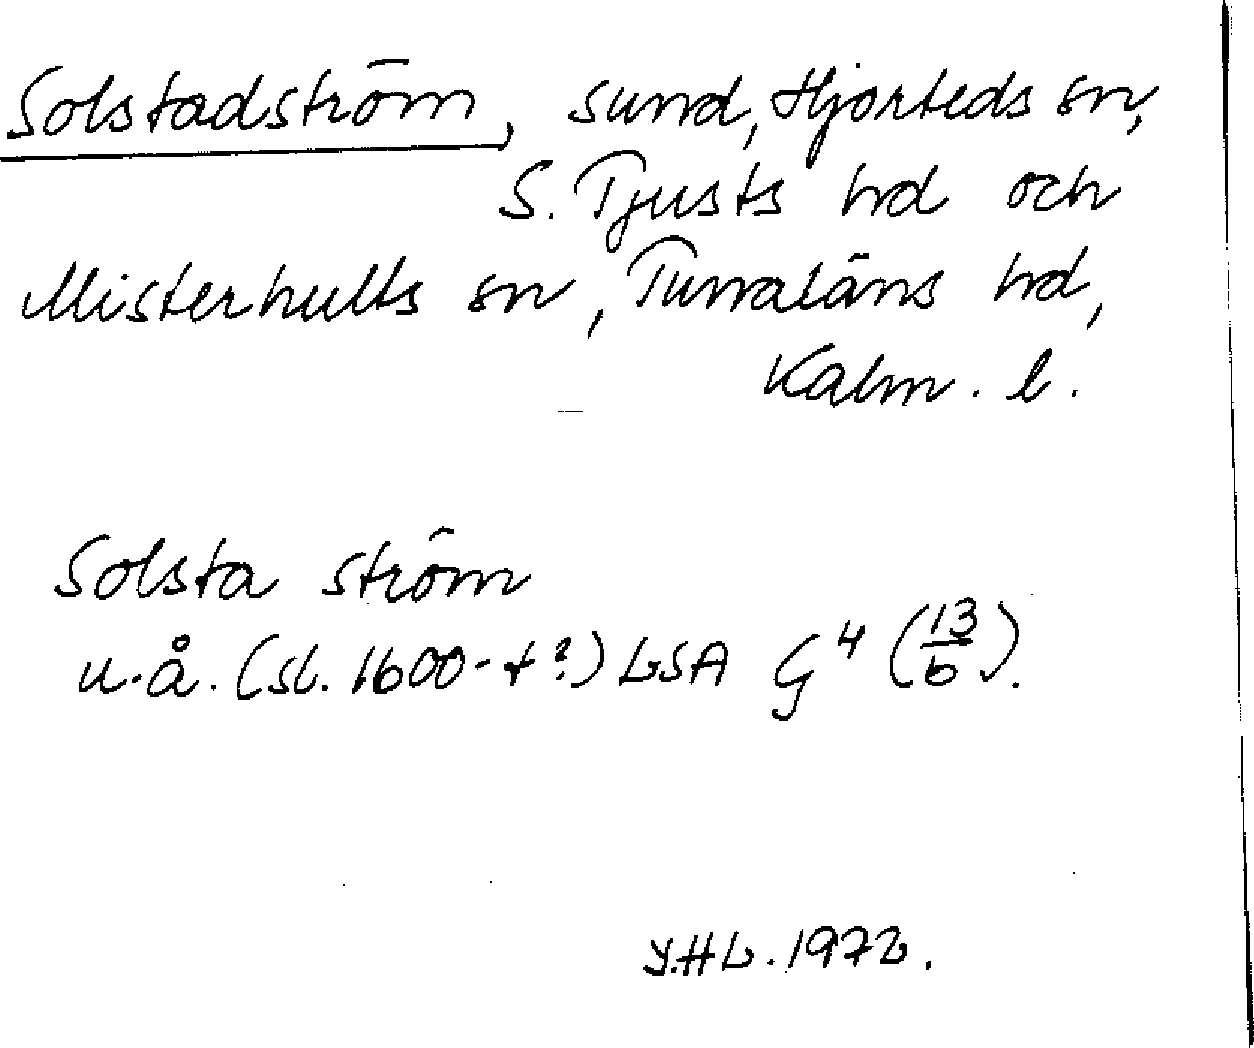 Solstadström, sund, Hjorteds sn,
S. Tjusts hd och
Misterhults sn, Tunaläns hd,
Kalm. l.
Solsta ström
u.å. (sl. 1600-t?) LSA G⁴ (13/6).
Y.H.L. 1972.